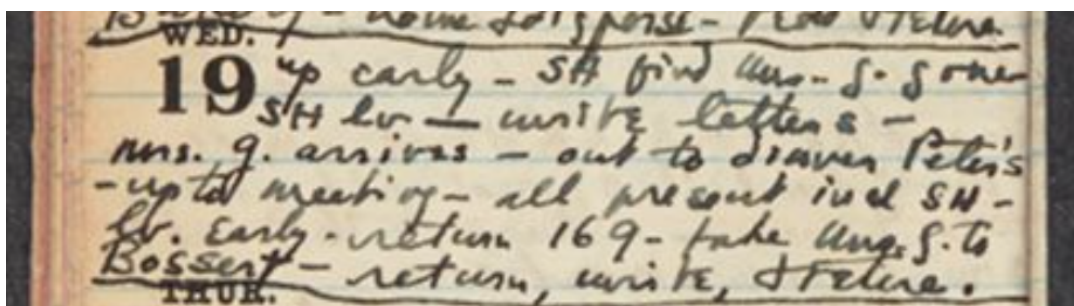 WED.
19 up early - SH find Mrs. G. gone
SH lv - write letters -
Mrs. G. arrives - out to dinner Peter's
- up to meeting - all present incl SH -
lv. Early - return 169 - take Mrs. G. to
Bossert - return, write, & retire.
THUR.